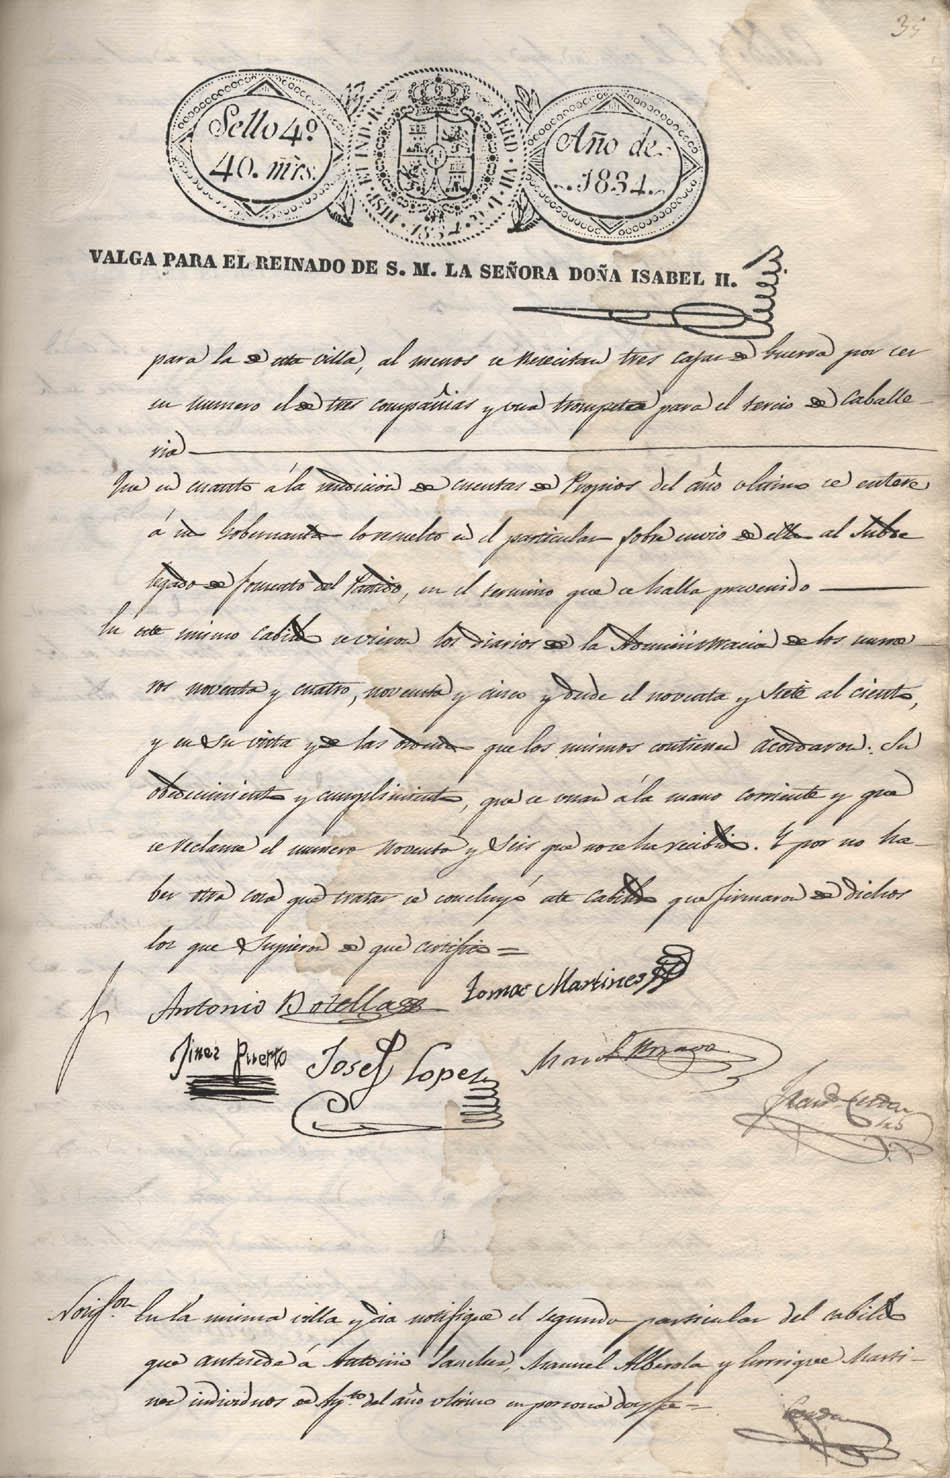 35
Sello 4º
40. mrs.
HISP. ET IND. R.
FERD. VII. D. G.
1834
Año de
1834.
VALGA PARA EL REINADO DE S. M. LA SEÑORA DOÑA ISABEL II.
para la de esta villa, al menos se necesitan tres cajas de Guerra por ser
en numero el de tres compañias y una trompeta para el tercio de Caballe-
ria
Que en cuanto á la rendicion de cuentas de Propios del año ultimo se entere
á lo resuelto en el particular sobre envio de ellas al Subde
legado de fomento del Partido, en el termino que se halla prevenido
En este mismo Cabildo se vieron los diarios de la Administracion de los nume-
ros noventa y cuatro, noventa y cinco y desde el noventa y siete al ciento,
y en su vista y de las ordenes que los mismos contienen acordaron: Su
obedecimiento y cumplimiento, que se unan á la mano corriente y que
se reclame el numero noventa y seis que no se ha recibido. Y por no ha-
ber otra cosa que tratar se concluyó este Cabildo que firmaron de dichos
los que supieron de que certifico =
Antonio Botella
Tomas Martines
Jines Puerto
Josef Lopez
Notifon
En la misma villa y dia notifique el segundo particular del cabildo
que antecede á Antonio Sanchez, Manuel Alberola y Enrrique Marti-
nez individuos de Aytto del año ultimo en persona doy fe =